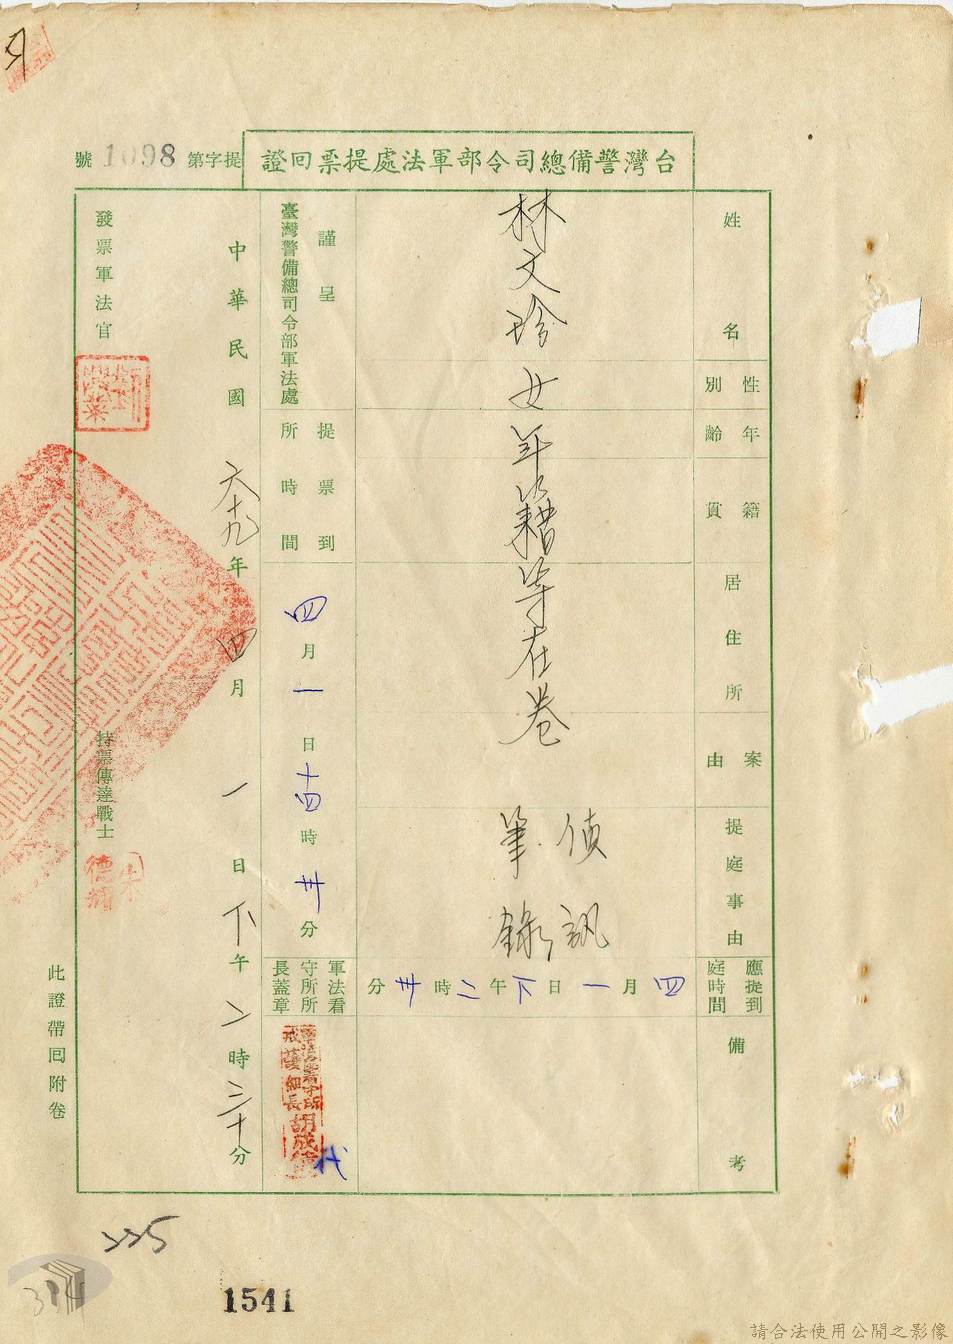 台灣警備總司令部軍法處提票回證
提字第1098號
姓名
林文玲
性別
女
年齡
籍貫
年籍等在卷
居住所
案由
提庭事由
偵訊
筆錄
應提到庭時間
四月一日下午二時卅分
備考
謹呈
臺灣警備總司令部軍法處
提票到所時間
四月一日十四時卅分
軍法看守所所長蓋章
戒護組長胡成
代
中華民國六十九年四月一日下午二時三十分
發票軍法官
持票傳達戰士
朱德
此證帶回附卷
225
314
1541
請合法使用公開之影像